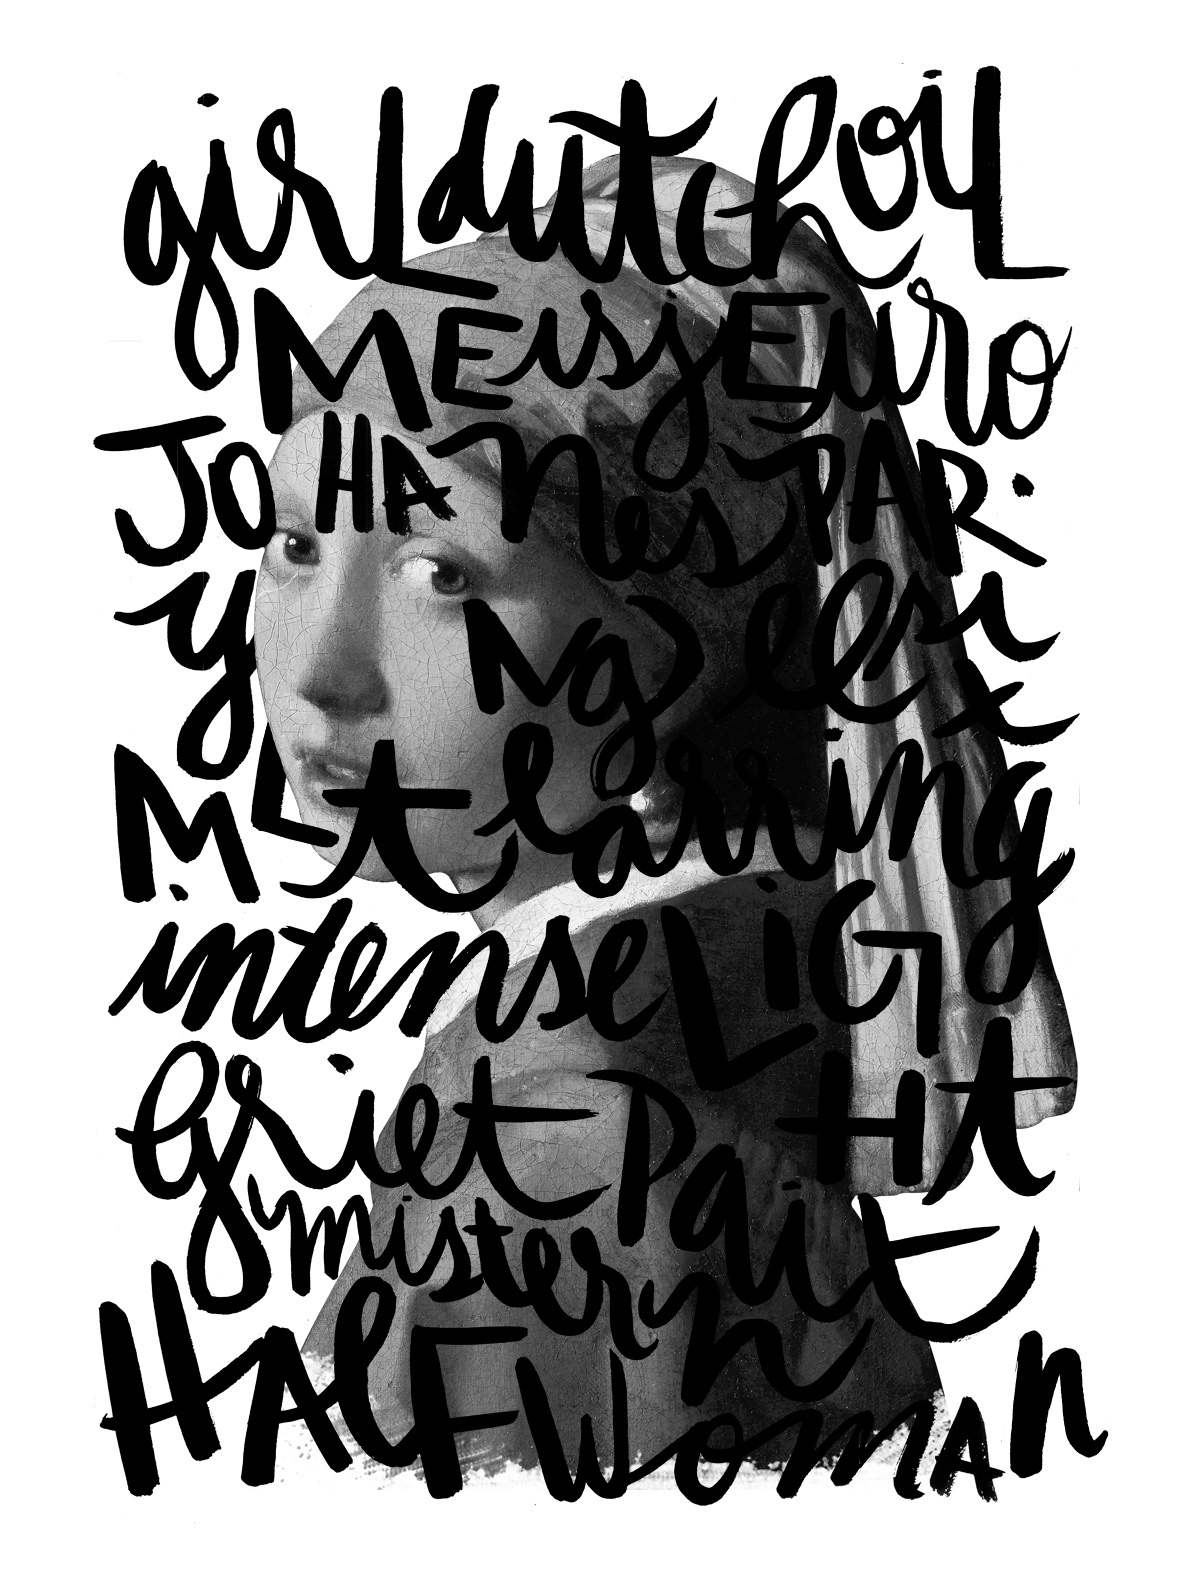 girL dutch oiL
MEisjE uro
JOHANes PAR.
y Ng eesi
MLt earring x
intense LiGHt
griet Paint
mister
HALF WomAn